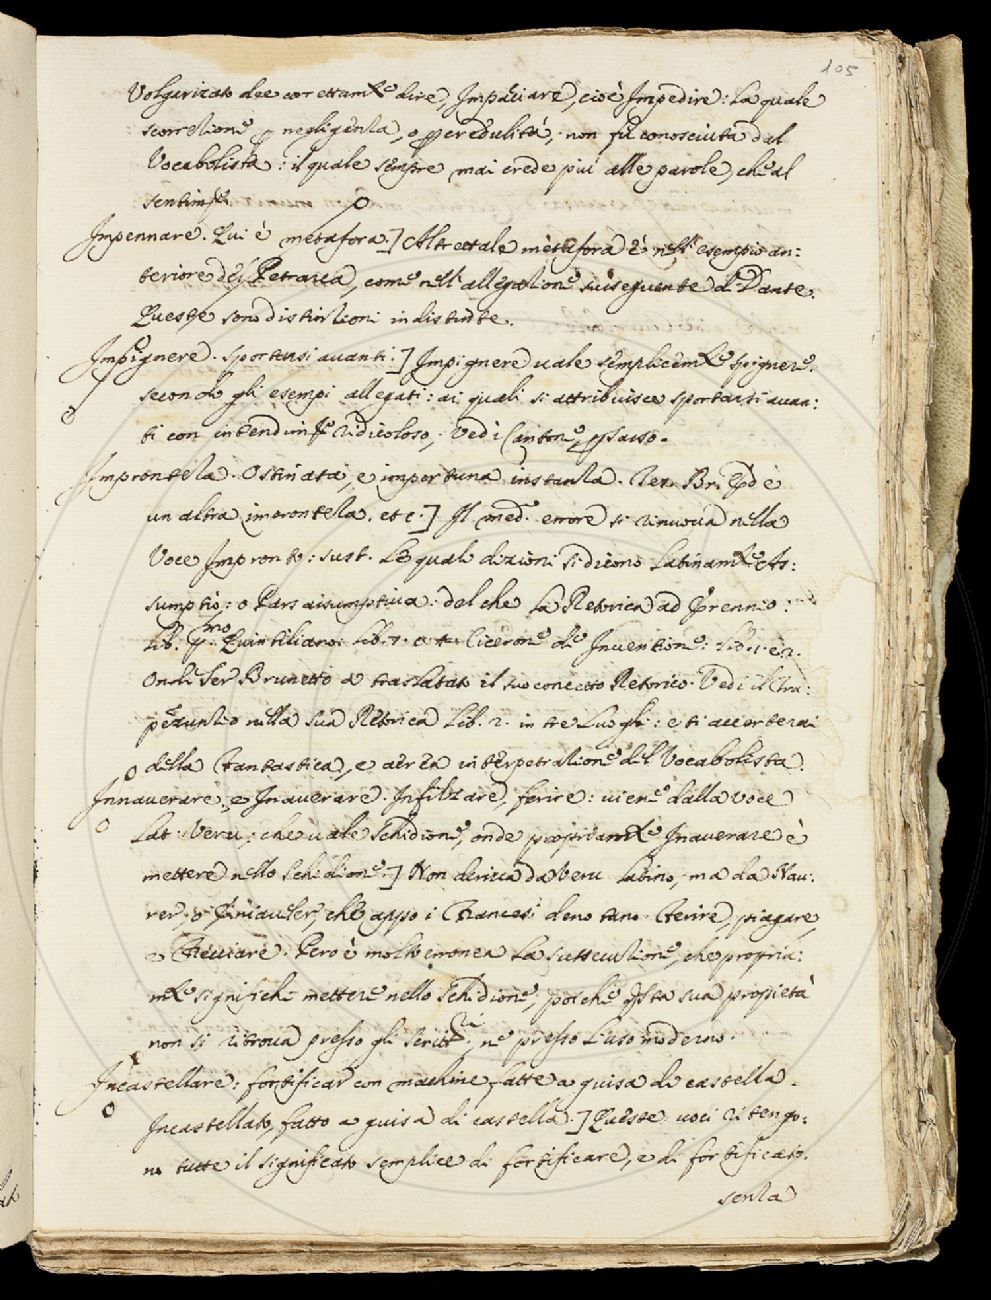 105
Volgarizato dee correttam.te dire, Impacciare, cioè Impedire: la quale
scorretione p negligenza, o p credulità, non fù conosciuta dal
Vocabolista: il quale sempre mai crede più alle parole, che al
sentim.to.
Impennare. Qui è metafora.] Altrettale metafora è nell' esempio an:
teriore del Petrarca, come nell' allegatione susseguente di Dante.
Queste sono distintioni indistinte.
Impignere. Sportarsi avanti.] Impignere vale semplicem.te spignere.
secondo gli esempi allegati: ai quali si attribuisce sportarsi avan:
ti con intendim.to ridicoloso. Vedi Cantone, p sasso.
Improntéza. Ostinata, e importuna instanza. Tes. Br. Qd è
un altra improntéza. etc.] Il med.o errore si rinuova nella
Voce Impronto: sust. Le quali dizioni si dicono Latinam.te As:
sumptio: o Pars assumptiva: del che la Retorica ad Erennio:
Lib. p.mo Quintiliano: Lib. 5. Cicerone de Inventione: Lib. 1. e 2.
Onde Ser Brunetto à traslatato il suo concetto Retorico. Vedi il Tra:
pezuntio nella sua Retorica Lib. 2. in tre luoghi: e ti accorterai
della fantastica, e aerea interpetratione del Vocabolista.
Innaverare, e Inaverare. Infilzare, ferire: viene dalla voce
Lat. Veru, che vale Schidione, onde propriam.te Inaverare è
mettere nello Schidione.] Non deriva da Veru latino, ma da Nau:
rer, che appo i Francesi denotano. Ferire, piagare,
e Frecciare. Però è molto erronea la suttecutione, che propria:
m.te significhi mettere nello Schidione, poiche q.sta sua propietà
non si ritrova presso gli Scritt.ri, ne presso l'uso moderno.
Incastellare: fortificar con machine fatte a guisa di castella.
Incastellato, fatto a guisa di castella.] Queste voci ritengo:
no tutte il significato semplice di fortificare, e di fortificato.
senza